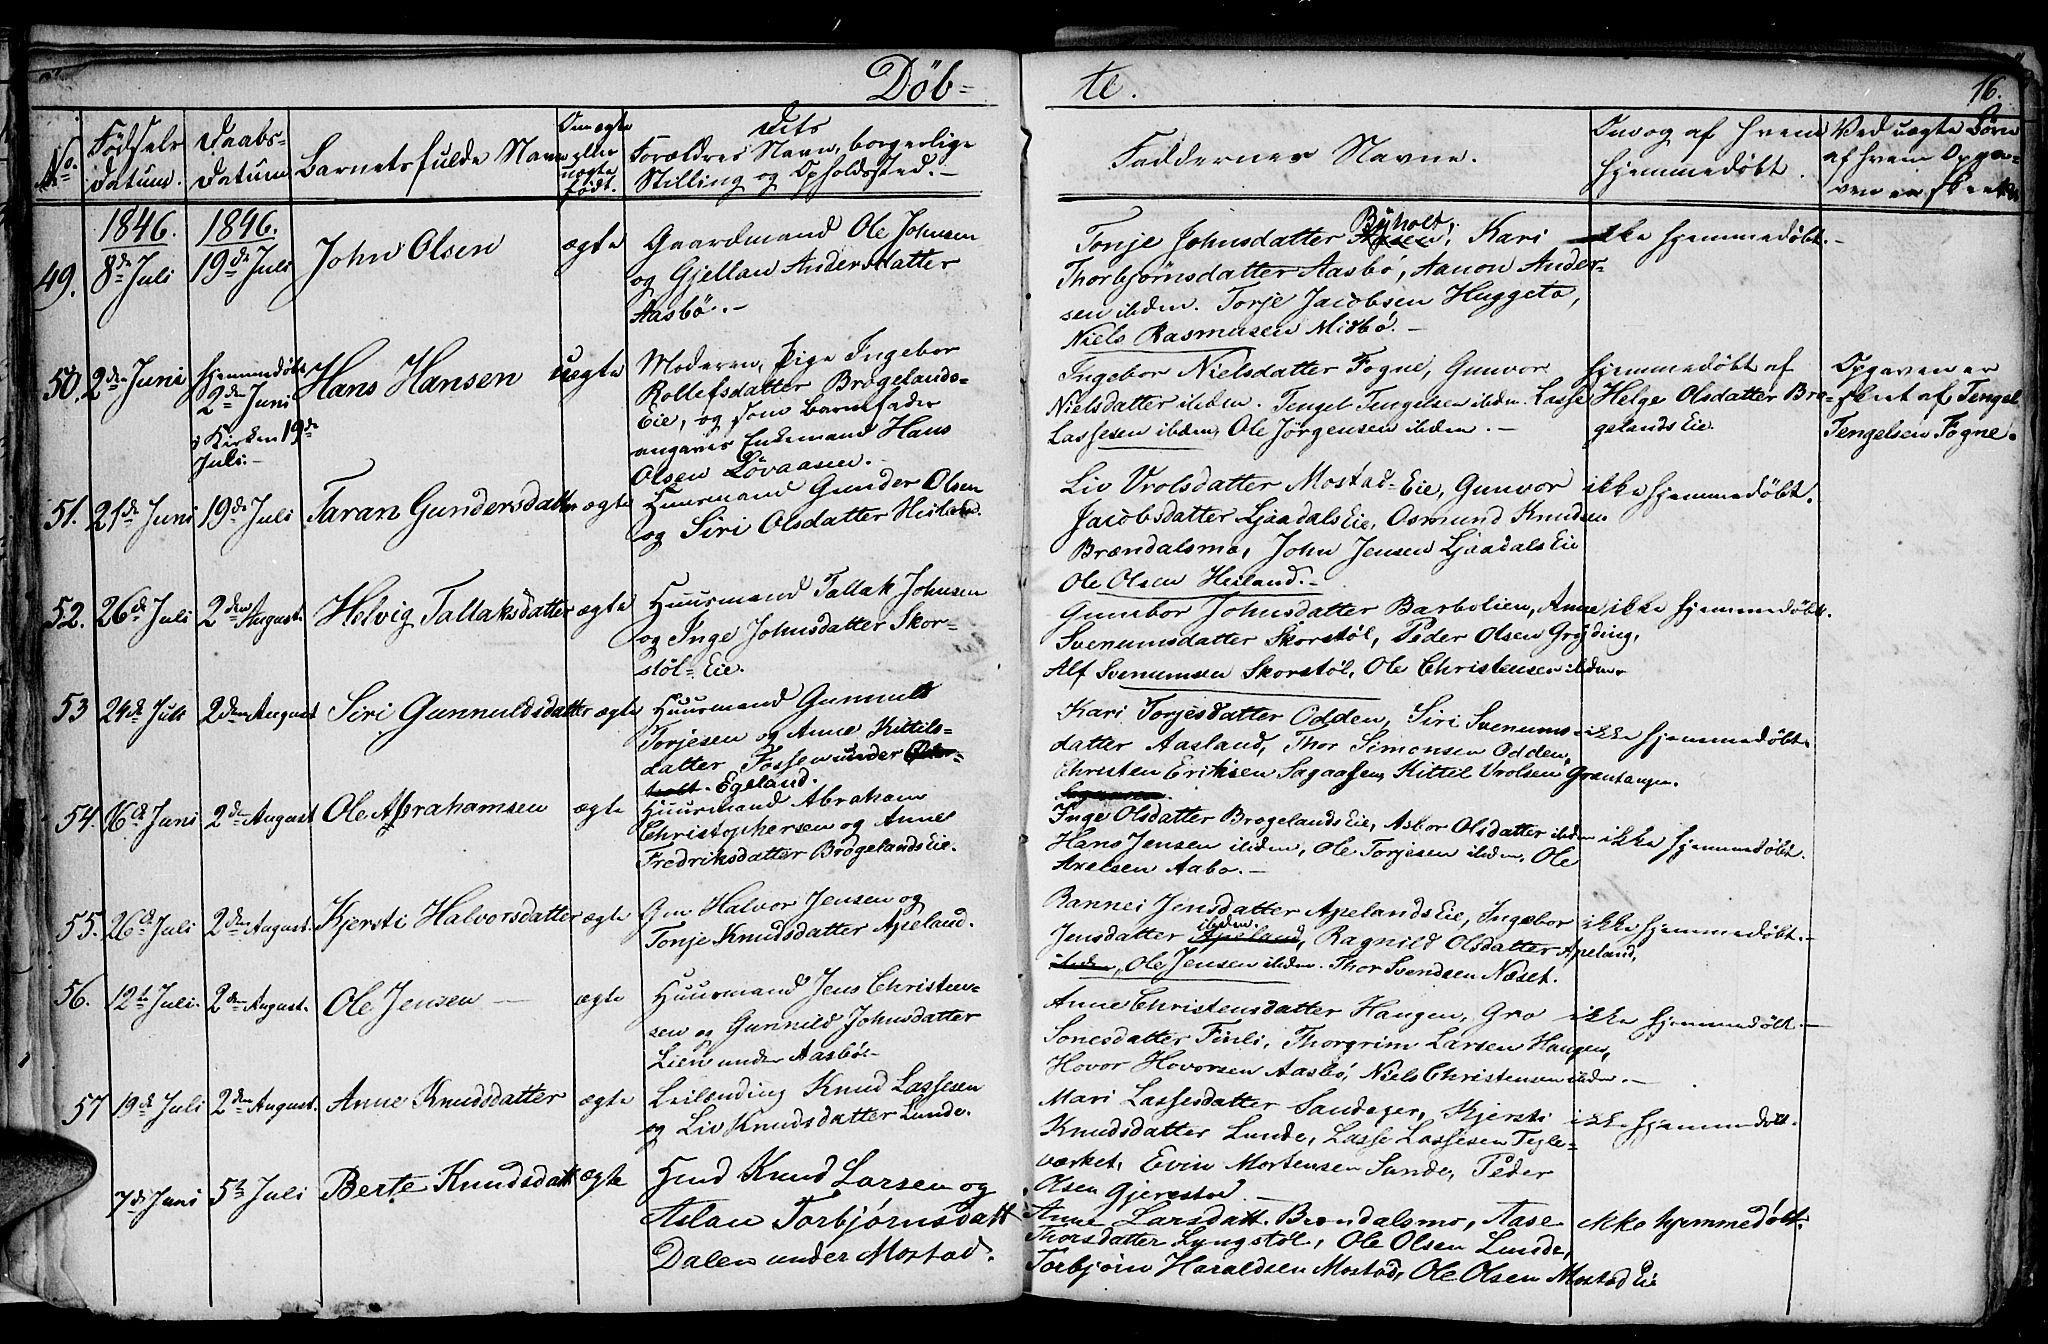 Döb-
te.
16.
No.
Fødsels
datum.
Daabs-
datum
Barnets fulde Navn
Om ægte
eller
uægte
født.
Dets
Forældres Navn, borgerlige
Stilling og Opholdssted.-
Faddernes Navne.
Om og af hvem
hjemmedøbt.
Ved uægte Børn
af hvem Opga-
ven er skeet.
1846.
1846.
49.
8de Juli
19de Juli
John Olsen
ægte
Gaardmand Ole Johnsen
og Gjellau Andersdatter
Aasbö.-
Byholt
Tonje Johnsdatter, Kari
Thorbjörnsdatter Aasbö, Aanon Ander-
sen ibden. Torje Jacobsen Huggeto,
Niels Rasmusen Midbö.-
ikke hjemmedøbt.-
50.
2den Juni
hjemmedøbt
2de Juni
i Kirken 19de
Juli.-
Hans Hansen
uægte
Moderen, Pige Ingebor
Rollefsdatter Brøgelands-
Eie, og som Barnefader
angives Enkemand Hans
Olsen Løvaasen.-
Ingebor Nielsdatter Fogne, Gunvor
Nielsdatter ibden. Tengel Tengelsen ibden. Lasse
Lassesen ibden, Ole Jørgensen ibden.-
hjemmedøbt af
Helge Olsdatter Brø-
gelands Eie.
Opgaven er
skeet af Tengel
Tengelsen Fogne.
51.
21de Juni
19de Juli
Taran Gundersdatter
ægte
Huusmand Gunder Olsen
og Siri Olsdatter Heiland.
Liv Vrolsdatter Mostad-Eie, Gunvor
Jacobsdatter Ljaadals Eie, Osmund Knudsen
Brændalsmo, John Jensen Ljaadals Eie
Ole Olsen Heiland.-
ikke hjemmedøbt.
52.
26de Juli
2den August.
Helvig Tallaksdatter
ægte
Huusmand Tallak Johnsen
og Inge Johnsdatter Skor-
støl-Eie.
Gunbor Johnsdatter Barbolien, Anne
Svenumsdatter Skorstøl, Peder Olsen Gryding,
Alf Svenumsen Skorstöl, Ole Christensen ibden.
ikke hjemmedøbt.
53
24de Juli
2den August
Siri Gunnuldsdatter
ægte
Huusmand Gunnuld
Torjesen og Anne Kittils-
datter Fossen under
Egeland.
Kari Torjesdatter Odden, Siri Svenums-
datter Aasland, Thor Simonsen Odden,
Christen Eriksen Sagaasen, Kittel Vrolsen Grøntangen.
ikke hjemmedøbt.
54.
16de Juni
2den August
Ole Abrahamsen
ægte
Huusmand Abraham
Christophersen og Anne
Fredriksdatter Brøgelands Eie.
Inge Olsdatter Brøgelands Eie, Asbor Olsdatter ibden
Hans Jensen ibden, Ole Torjesen ibden, Ole
Axelsen Aabo.-
ikke hjemmedøbt.
55.
26de Juli
2den August.
Kjersti Halvorsdatter
ægte
Gm. Halvor Jensen og
Tonje Knudsdatter Apeland.
Bannei Jensdatter Apelands Eie, Ingebor
ibden.
Jensdatter Apeland, Ragnild Olsdatter Apeland,
ibden, Ole Jensen ibden. Thor Svendsen Næset.
ikke hjemmedøbt.-
56.
12te Juli.
2den August.
Ole Jensen -
ægte
Huusmand Jens Christen-
sen og Gunnild Johnsdatter
Lien under Aasbö.-
Anne Christensdatter Haugen, Gro
Sonesdatter Finli, Thorgrim Larsen Haugen,
Hovor Hovorsen Aasbö, Niels Christensen ibden.-
ikke hjemmedøbt.-
57
19de Juli
2den August.
Anne Knudsdatter
ægte
Leilænding Knud Lassesen
og Liv Knudsdatter Lunde.
Mari Lassesdatter Sandager, Kjersti
Knudsdatter Lunde, Lasse Lassesen Tegle-
værket, Evin Mortensen Sunde, Peder
Olsen Gjerestad.-
ikke hjemmedøbt.
7de Juni
5te Juli
Berte Knudsdatt
ægte
Hmd Knud Larsen og
Aslau Torbjørnsdatt
Dalen under Mostad.
Anne Larsdatt. Brændalsmo, Aase
Thorsdatter Lyngstöl, Ole Olsen Lunde,
Torbjörn Haraldsen Mostad, Ole Olsen Mostad Eie
ikke hjemmedøbt.